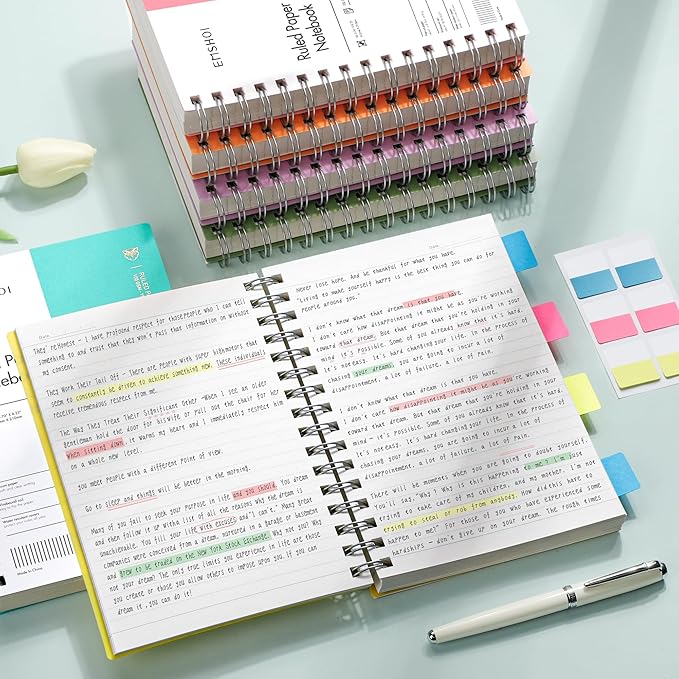 ETISHOI
Ruled Paper
Notebook
RULED P
Made in China
Date
They're Honest - I have profound respect for those people who I can tell
something to and trust that they won't pass that information on without
my consent.
They Work Their Tail Off - There are people with super highmotors that
seem to constantly be driven to achieve something new. These individuals
receive tremendous respect from me.
The Way They Treat Their Significant Other -When I see an older
gentleman hold the door for his wife or pull out the chair for her
when sitting down, it warms my heart and I immediately respect him
on a whole new level.
you meet people with a different point of view.
Go to sleep and things will be better in the morning.
Many of you fail to seek your purpose in life and you should. You dream
and then follow it up with a list of all the reasons why the dream is
unachievable. You fill your life with excuses and"I can't." Many great
companies were conceived from a dream, nurtured in a garage or basement
and grew to be traded on the New York Stock Exchange. Why not you? Why
not your dream? The only true limits you experience in life are those
you create or those you allow others to impose upon you. If you can
dream it, you can do it!
Date
never lose hope. And be thankful for what you have.
"Living to make yourself happy is the best thing you can do for
people around you."
I don't know what that dream is that you have.
I don't care how disappointing it might be as you're working
toward that dream. But that dream that you're holding in your
mind - it's possible. Some of you already know that it's hard.
It's not easy. It is hard changing your life. In the process of
chasing your dreams, you are going to incur a lot of
disappointment, a lot of failure, a lot of pain.
I don't know what that dream is that you have.
I don't care how disappointing it might be as you're working
toward that dream. But that dream that you're holding in your
mind - it's possible. Some of you already know that it's hard.
It's not easy. It's hard changing your life. In the process of
chasing your dreams, you are going to incur a lot of
disappointment, a lot of failure, a lot of pain.
There will be moments when you are going to doubt yourself.
You'll say, "Why? Why is this happening to me? I'm just
trying to take care of my children, and my mother. I'm not
trying to steal or rob from anybody. How did this have to
happen to me?" For those of you who have experienced some
hardships - don't give up on your dream. The rough times